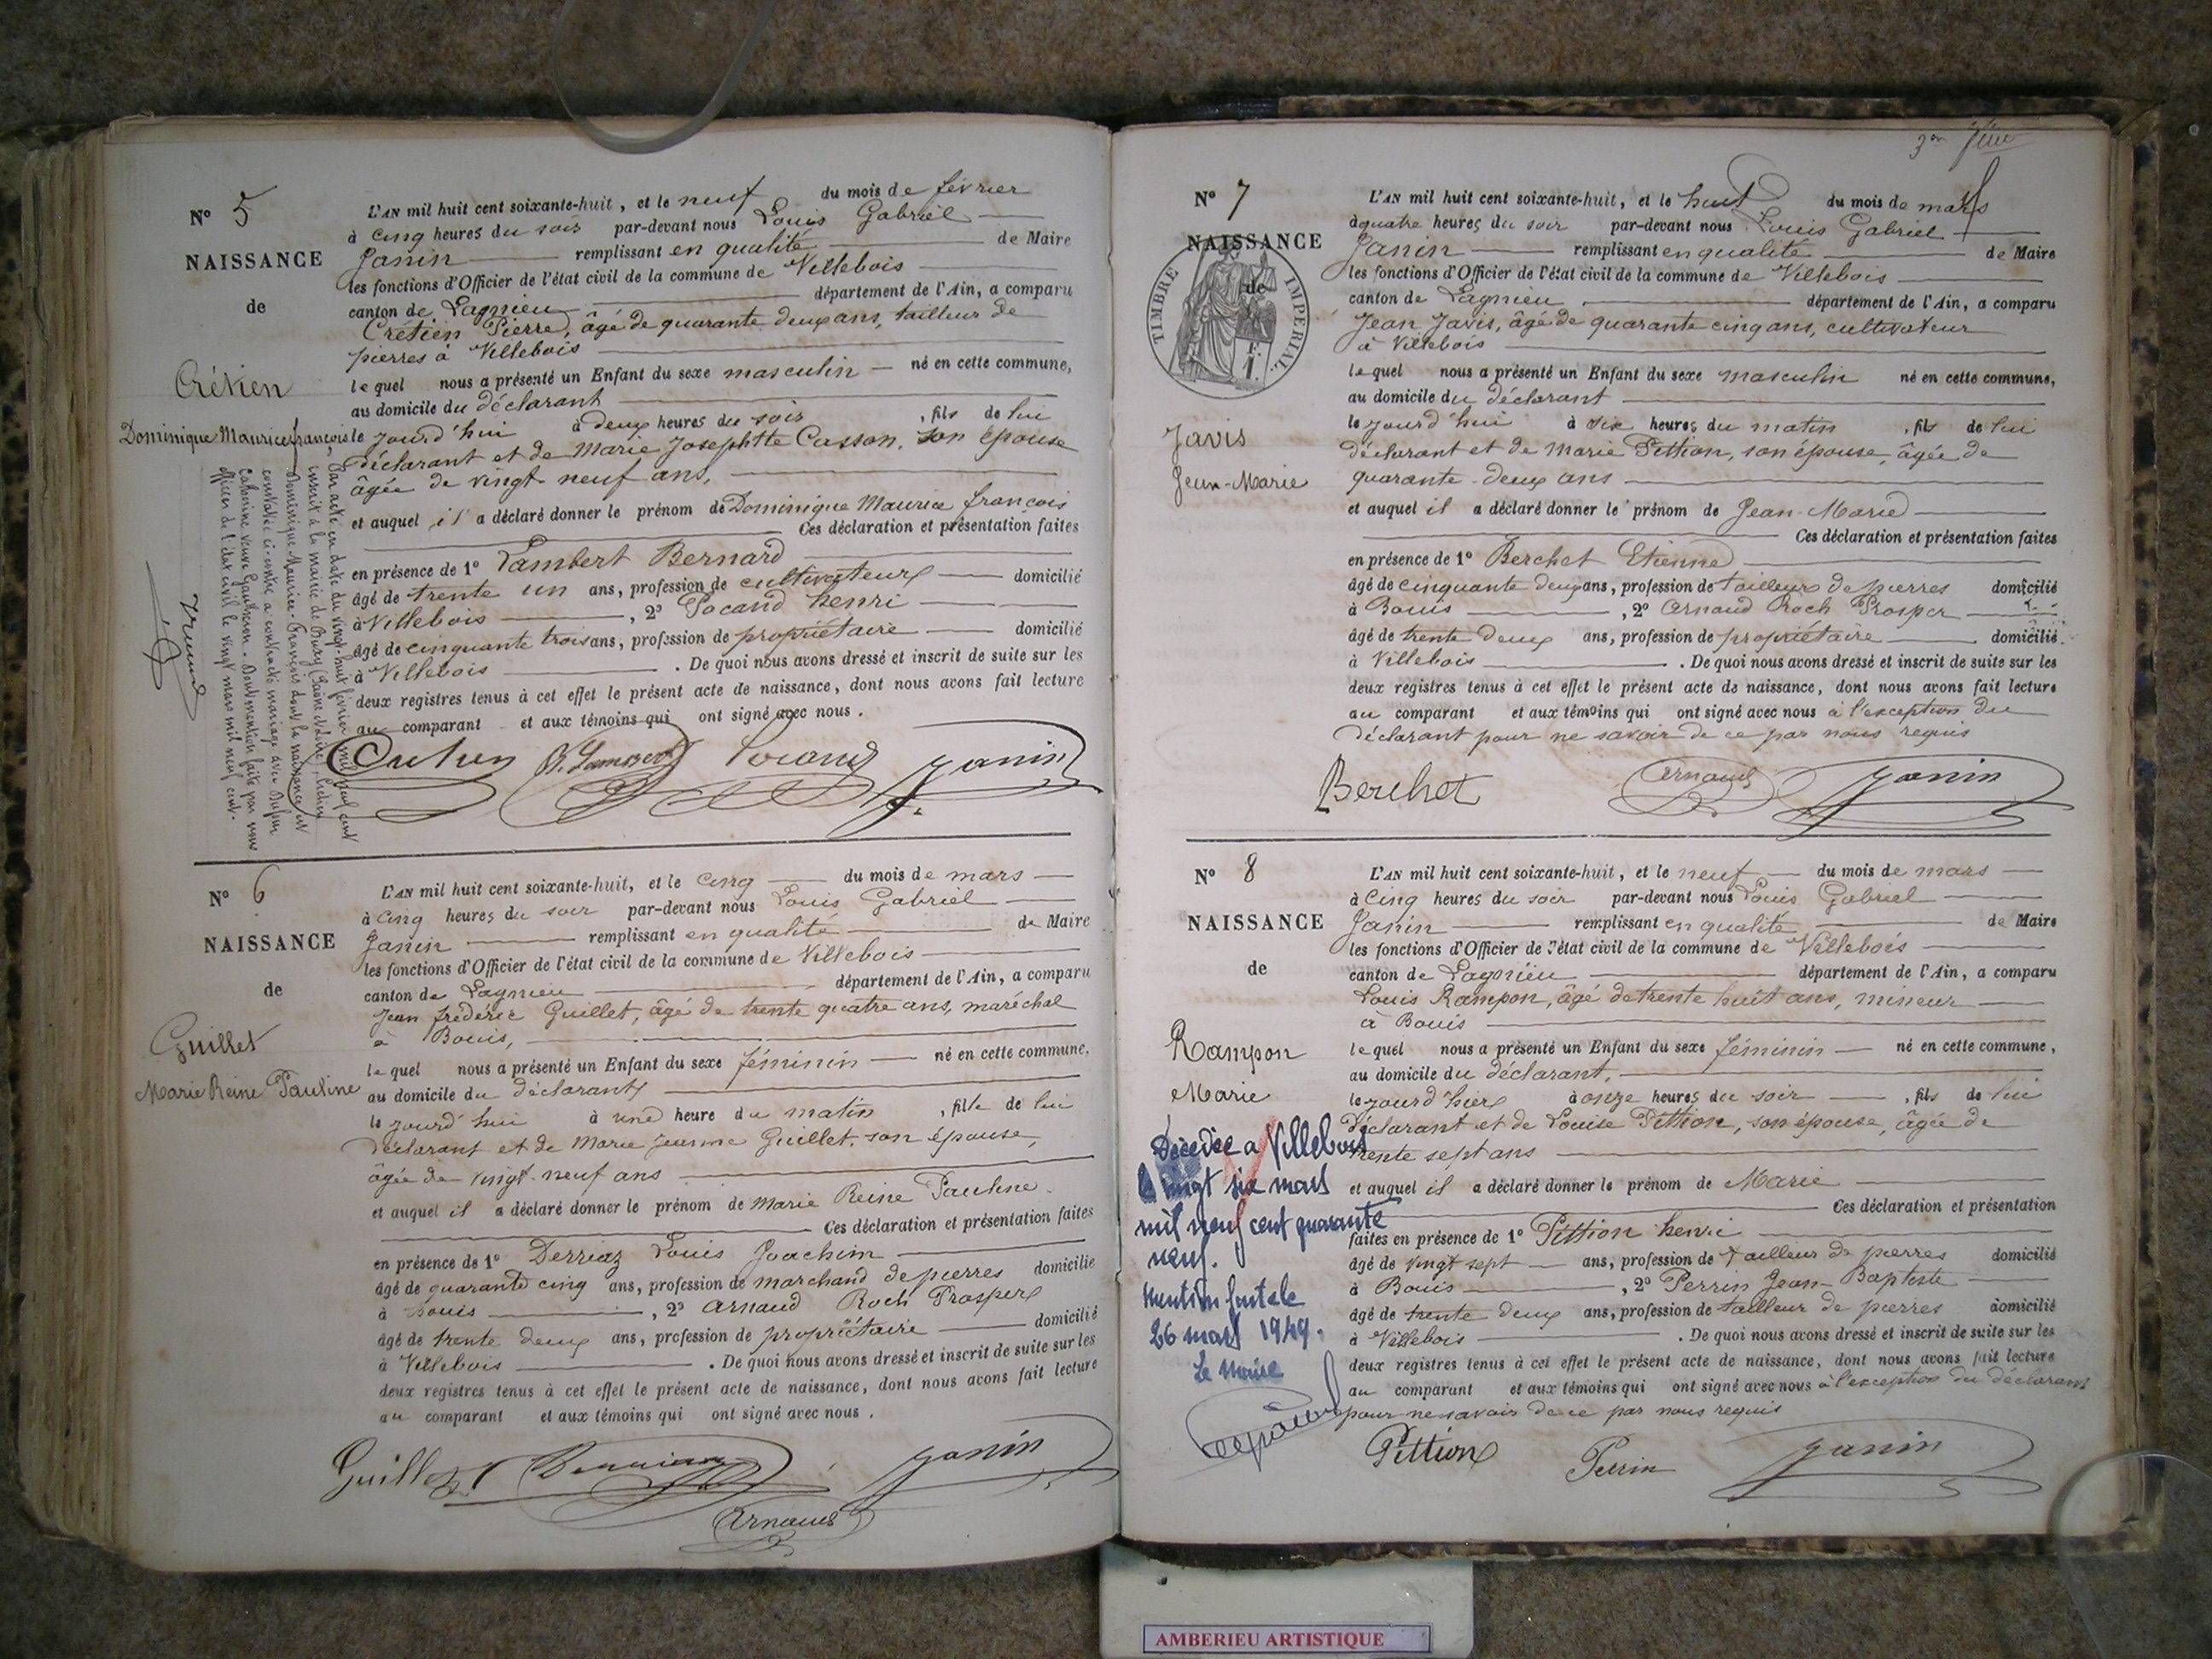 N° 5
NAISSANCE
de
Crétien
Dominique Maurice françois
L'AN mil huit cent soixante-huit, et le neuf du mois de février
à cinq heures du soir par-devant nous Louis Gabriel
Janin remplissant en qualité de Maire
les fonctions d'Officier de l'état civil de la commune de Villebois
canton de Lagnieu département de l'Ain, a comparu
Crétien Pierre, âgé de quarante deux ans, tailleur de
pierres à Villebois
lequel nous a présenté un Enfant du sexe masculin né en cette commune,
au domicile du déclarant
le jourd'hui à deux heures du soir, fils de lui
déclarant et de Marie Josephtte Casson, son épouse
âgée de vingt-neuf ans,
et auquel il a déclaré donner le prénom de Dominique Maurice françois
Ces déclaration et présentation faites
en présence de 1° Lambert Bernard
âgé de trente un ans, profession de cultivateur domicilié
à Villebois, 2° Socand henri
âgé de cinquante trois ans, profession de propriétaire domicilié
à Villebois. De quoi nous avons dressé et inscrit de suite sur les
deux registres tenus à cet effet le présent acte de naissance, dont nous avons fait lecture
au comparant et aux témoins qui ont signé avec nous.
Par acte en date du vingt-huit février mil neuf cent
inscrit à la mairie de Buxy (Saône et Loire), Crétien
Dominique Maurice François dont la naissance est
constatée ci-contre a contracté mariage avec
veuve Gautheron. Dont mention faite par nous
officier de l'état civil le vingt mars mil neuf cent.
B. Lambert Socand Janin
N° 6
NAISSANCE
de
Guillet
Marie Reine Pauline
L'AN mil huit cent soixante-huit, et le cinq du mois de mars
à cinq heures du soir par-devant nous Louis Gabriel
Janin remplissant en qualité de Maire
les fonctions d'Officier de l'état civil de la commune de Villebois
canton de Lagnieu département de l'Ain, a comparu
Jean frédéric Guillet, âgé de trente quatre ans, maréchal
à Bouis,
lequel nous a présenté un Enfant du sexe féminin né en cette commune,
au domicile du déclarant
le jourd'hui à une heure du matin, fille de lui
déclarant et de Marie Jeanne Guillet, son épouse,
âgée de vingt-neuf ans
et auquel il a déclaré donner le prénom de Marie Reine Pauline
Ces déclaration et présentation faites
en présence de 1° Derriaz Louis Joachim
âgé de quarante cinq ans, profession de marchand de pierres domicilié
à Bouis, 2° Arnaud Roch Prosper
âgé de trente deux ans, profession de propriétaire domicilié
à Villebois. De quoi nous avons dressé et inscrit de suite sur les
deux registres tenus à cet effet le présent acte de naissance, dont nous avons fait lecture
au comparant et aux témoins qui ont signé avec nous.
Guillet Derriaz Janin
Arnaud
N° 7
NAISSANCE
de
TIMBRE IMPÉRIAL
Javis
Jean-Marie
L'AN mil huit cent soixante-huit, et le huit du mois de mars
à quatre heures du soir par-devant nous Louis Gabriel
Janin remplissant en qualité de Maire
les fonctions d'Officier de l'état civil de la commune de Villebois
canton de Lagnieu département de l'Ain, a comparu
Jean Javis, âgé de quarante cinq ans, cultivateur
à Villebois
lequel nous a présenté un Enfant du sexe masculin né en cette commune,
au domicile du déclarant
le jourd'hui à six heures du matin, fils de lui
déclarant et de Marie Pittion, son épouse, âgée de
quarante-deux ans
et auquel il a déclaré donner le prénom de Jean-Marie
Ces déclaration et présentation faites
en présence de 1° Berchet Etienne
âgé de cinquante deux ans, profession de tailleur de pierres domicilié
à Bouis, 2° Arnaud Roch Prosper
âgé de trente deux ans, profession de propriétaire domicilié
à Villebois. De quoi nous avons dressé et inscrit de suite sur les
deux registres tenus à cet effet le présent acte de naissance, dont nous avons fait lecture
au comparant et aux témoins qui ont signé avec nous à l'exception du
déclarant pour ne savoir de ce par nous requis
Berchet Arnaud Janin
N° 8
NAISSANCE
de
Rampon
Marie
Décédée à Villebois
le vingt six mars
mil neuf cent quarante
neuf.
Mention faite le
26 mars 1949.
Le Maire
L'AN mil huit cent soixante-huit, et le neuf du mois de mars
à cinq heures du soir par-devant nous Louis Gabriel
Janin remplissant en qualité de Maire
les fonctions d'Officier de l'état civil de la commune de Villebois
canton de Lagnieu département de l'Ain, a comparu
Louis Rampon, âgé de trente huit ans, mineur
à Bouis
lequel nous a présenté un Enfant du sexe féminin né en cette commune,
au domicile du déclarant,
le jourd'hier à onze heures du soir, fils de lui
déclarant et de Louise Pittion, son épouse, âgée de
trente sept ans
et auquel il a déclaré donner le prénom de Marie
Ces déclaration et présentation
faites en présence de 1° Pittion henri
âgé de vingt sept ans, profession de tailleur de pierres domicilié
à Bouis, 2° Perrin Jean-Baptiste
âgé de trente deux ans, profession de tailleur de pierres domicilié
à Villebois. De quoi nous avons dressé et inscrit de suite sur les
deux registres tenus à cet effet le présent acte de naissance, dont nous avons fait lecture
au comparant et aux témoins qui ont signé avec nous à l'exception du déclarant
pour ne savoir de ce par nous requis
Pittion Perrin Janin
AMBERIEU ARTISTIQUE